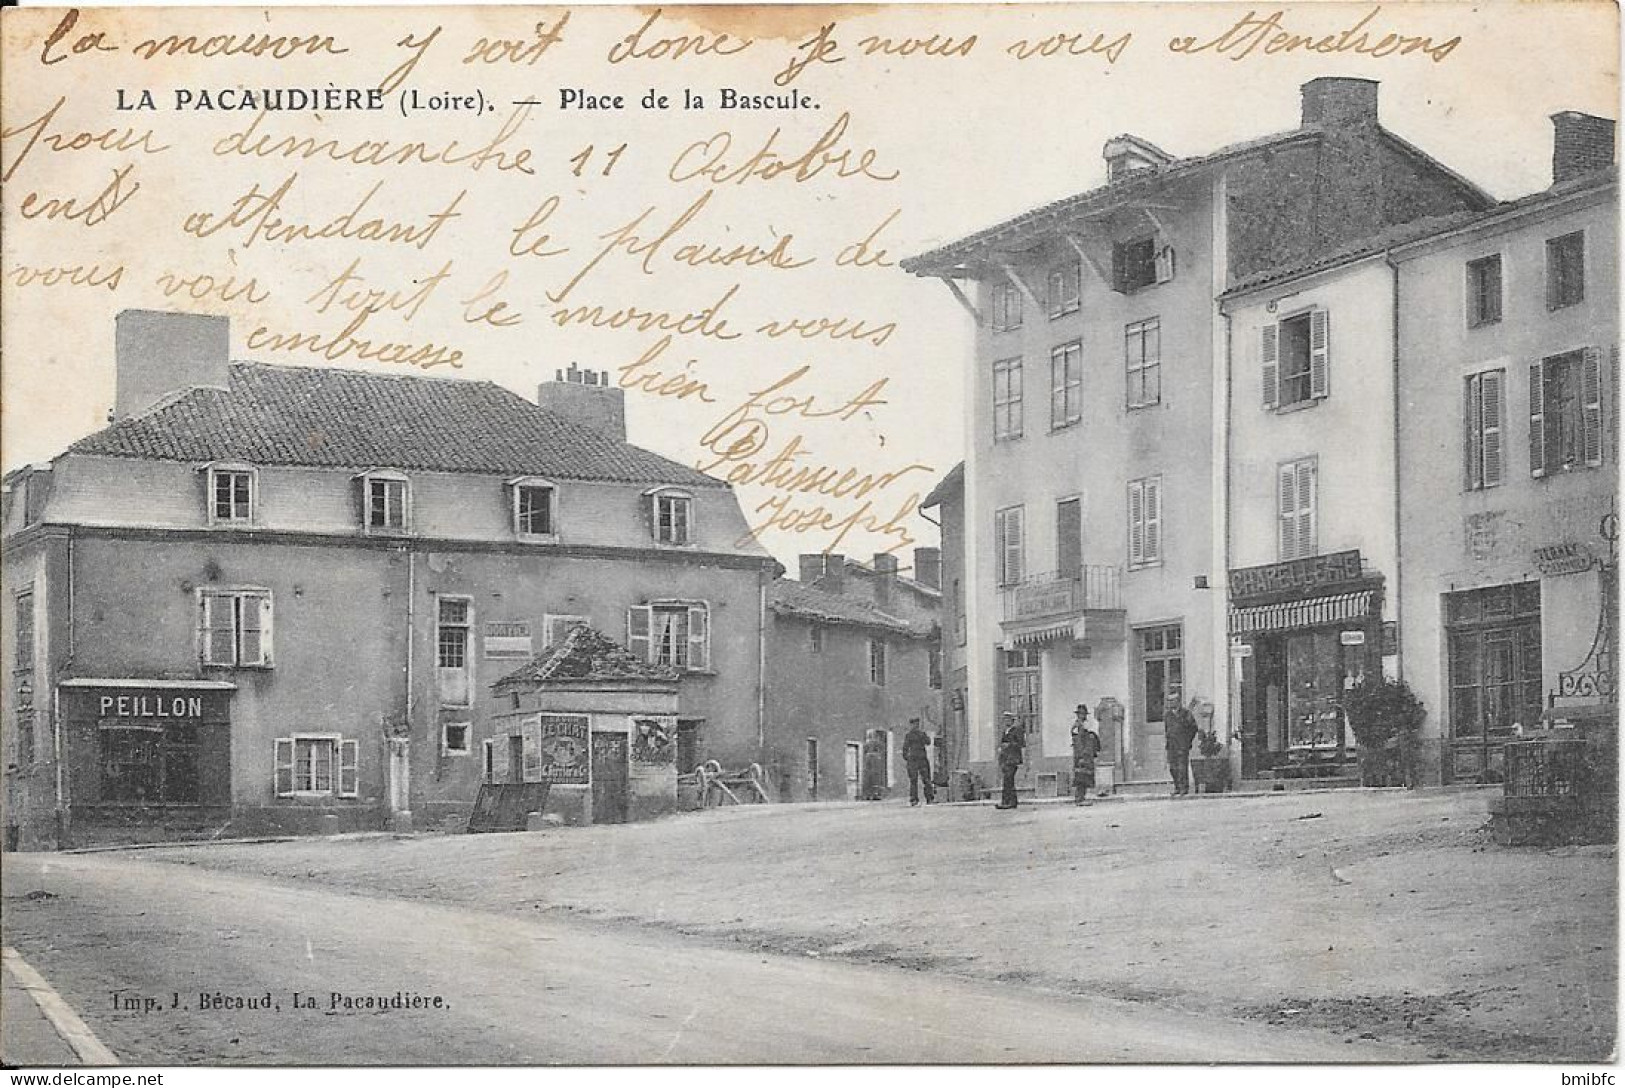 la maison y soit donc je nous vous attendrons
LA PACAUDIÈRE (Loire). — Place de la Bascule.
pour dimanche 11 Octobre
en attendant le plaisir de
vous voir tout le monde vous
embrasse bien fort.
Patissier
Joseph
PEILLON
CHAPELLERIE
Imp. J. Bécaud, La Pacaudière.
bmibfc